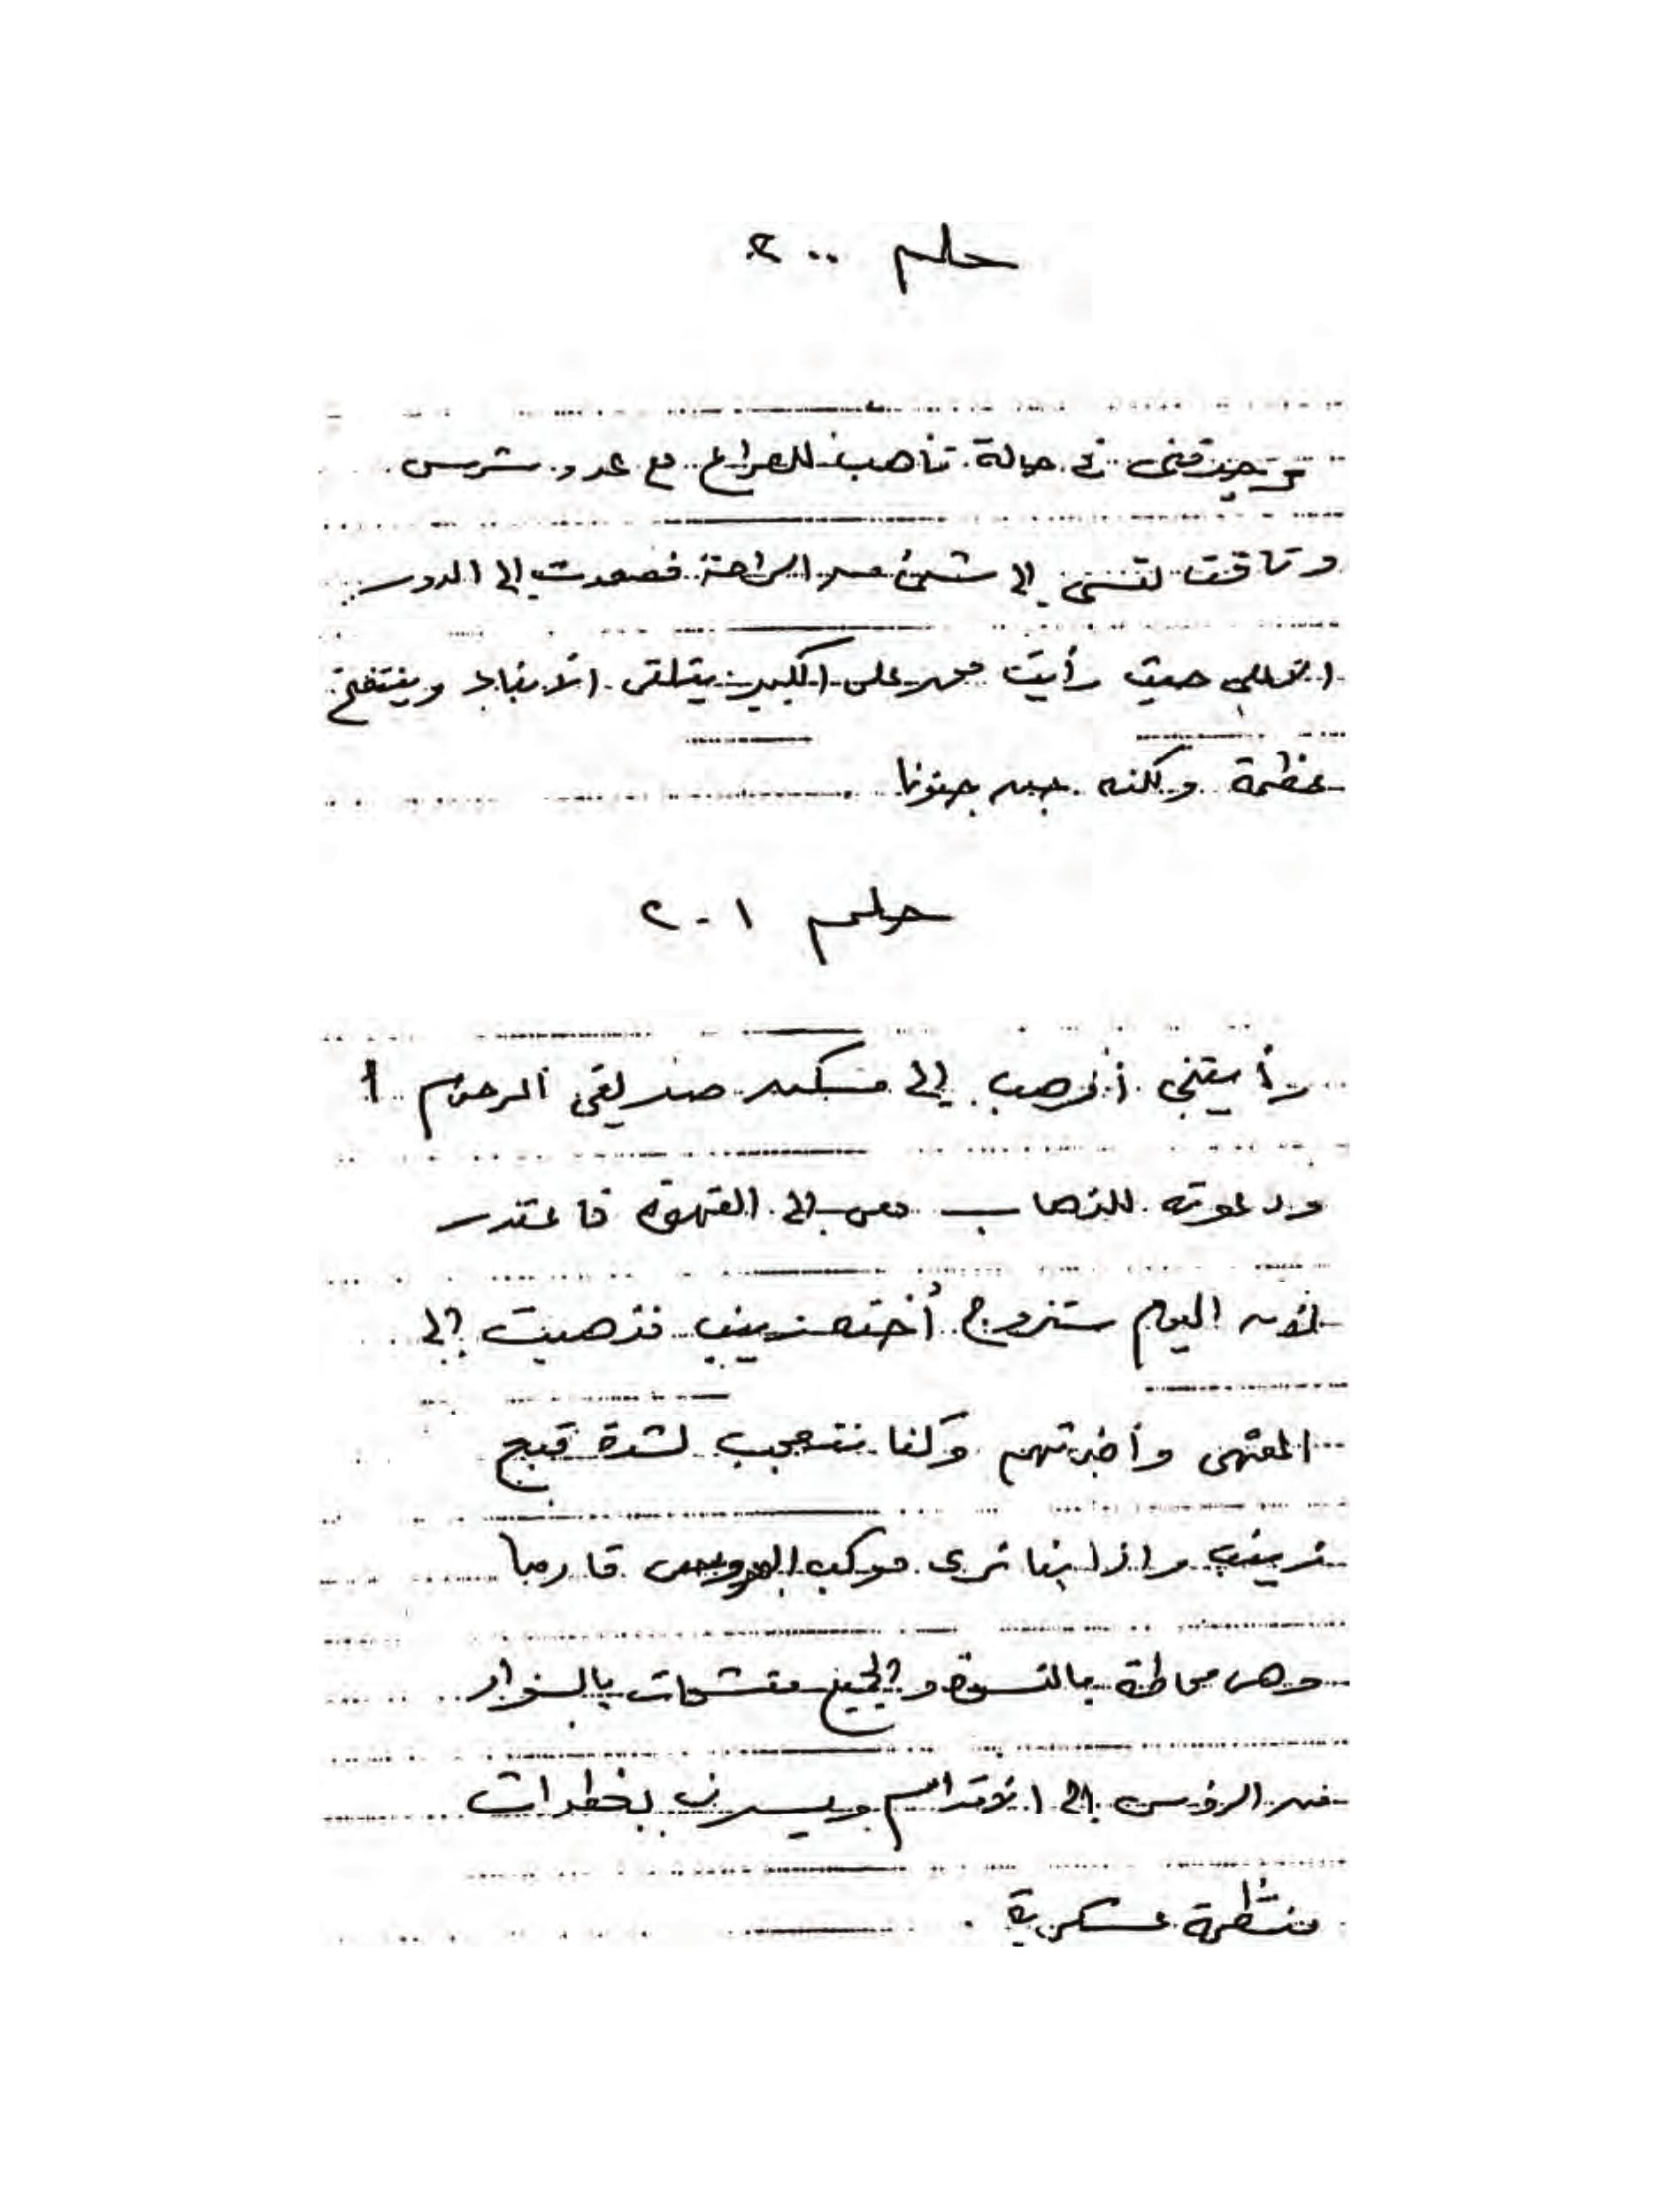 حلم ٢٠٠
وجدتنى فى حالة تأهب للصراع مع عدو شرس
وتاقت نفسى إلى شئ من الراحة فصعدت إلى الدور
الأعلى حيث رأيت محمد على الكبير يتلقى الأنباء وينتفخ
عظمة ولكنه جن جنونا
حلم ٢٠١
رأيتنى أذهب إلى مسكن صديقى المرحوم أ
ودعوته للذهاب معى إلى القهوة فاعتذر
لأن اليوم ستتزوج أخته زينب فذهبت إلى
المقهى وأخبرتهم وكنا نتعجب لشدة قبح
زينب وإذا بنا نرى موكب العروس قادما
وهى محاطة بالنسوة والجميع متشحات بالسواد
من الرؤس إلى الأقدام ويسرن بخطوات
منتظمة عسكرية .